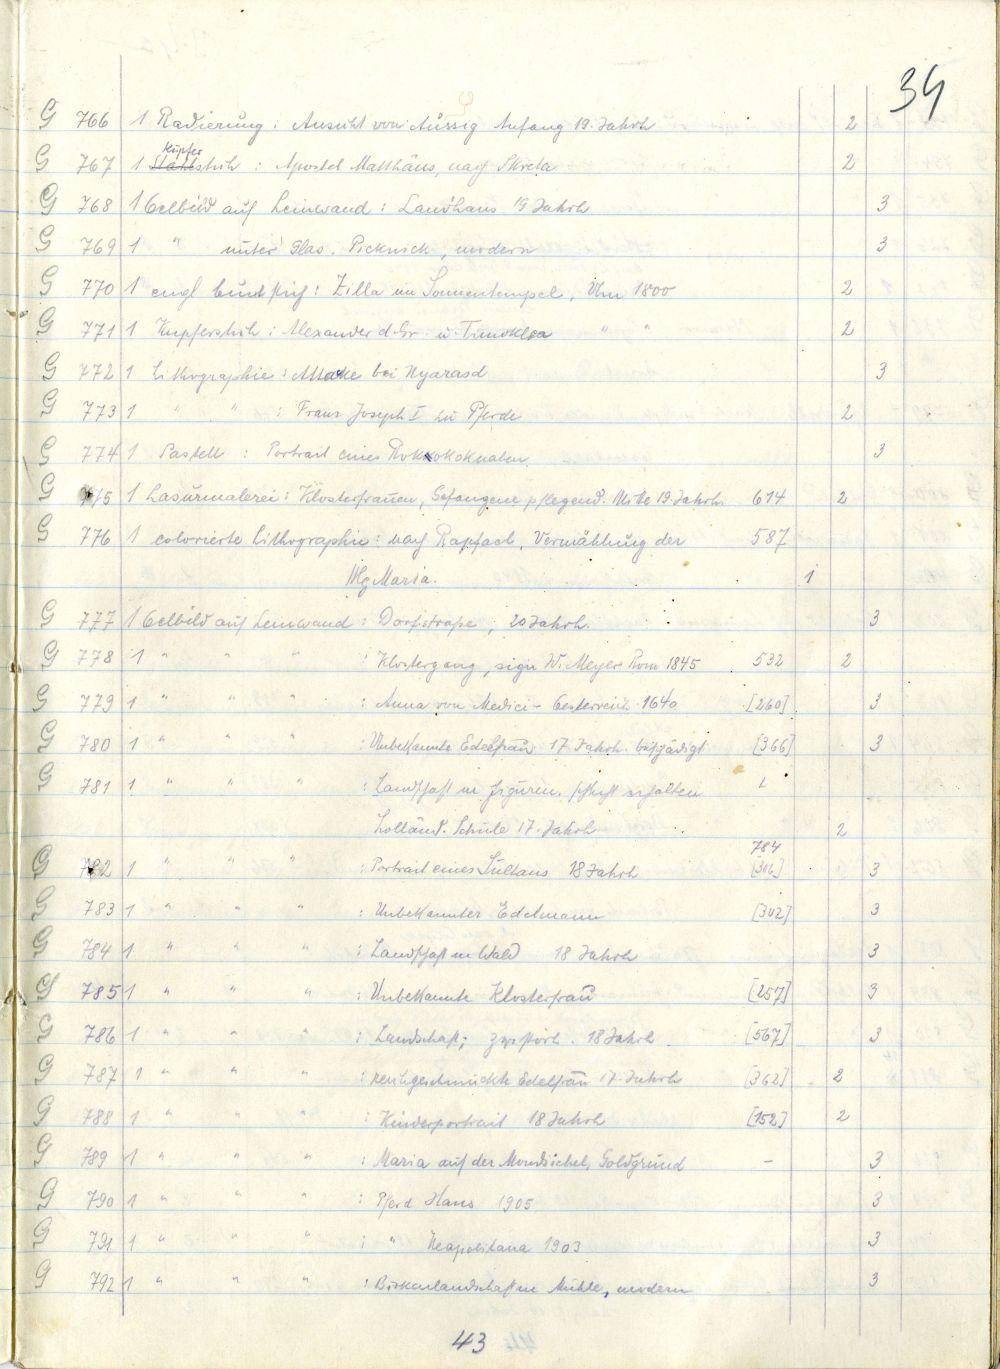 34
G 766 1 Radierung: Ansicht von Aussig Anfang 19. Jahrh 2
G 767 1 Stahlstich Kupfer : Apostel Matthäus, nach Skreta 2
G 768 1 Oelbild auf Leinwand: Landhaus 19 Jahrh 3
G 769 1 " unter Glas. Picknick, modern 3
G 770 1 engl buntstich: Zilla im Sonnentempel, Um 1800 2
G 771 1 Kupferstich: Alexander d. Gr. u. Timoklea " " 2
G 772 1 Lithographie: Attacke bei Nyarasd 3
G 773 1 " " : Franz Joseph I zu Pferde 2
G 774 1 Pastell : Portrait eines Rokokoknaben 3
G 775 1 Lasurmalerei: Klosterfrauen, Gefangene pflegend. Mitte 19. Jahrh. 614 2
G 776 1 colorierte Lithographie: nach Rapfael, Vermählung der 587
Hlg Maria. 1
G 777 1 Oelbild auf Leinwand: Dorfstrasse, 20 Jahrh. 3
G 778 1 " " " : Klostergang, sign W. Meyer Rom 1845 532 2
G 779 1 " " " : Anna von Medici - Oesterreich 1640 [260] 3
G 780 1 " " " : Unbekannte Edelfrau 17 Jahrh. beschädigt [366] 3
G 781 1 " " " : Landschaft m Figuren. schlecht erhalten
Holländ. Schule 17. Jahrh 2
784
G 782 1 " " " : Portrait eines Sultans 18 Jahrh [316] 3
G 783 1 " " " : Unbekannter Edelmann [342] 3
G 784 1 " " " : Landschaft m Wald 18 Jahrh 3
G 785 1 " " " : Unbekannte Klosterfrau [257] 3
G 786 1 " " " : Landschaft; zerstört. 18 Jahrh [567] 3
G 787 1 " " " : reichgeschmückte Edelfrau 17. Jahrh [362] 2
G 788 1 " " " : Kinderportrait 18 Jahrh [152] 2
G 789 1 " " " : Maria auf der Mondsichel, Goldgrund – 3
G 790 1 " " " : Pferd Hans 1905 3
G 791 1 " " " : " Neapolitana 1903 3
G 792 1 " " " : Birkenlandschaft m Mühle, modern 3
43